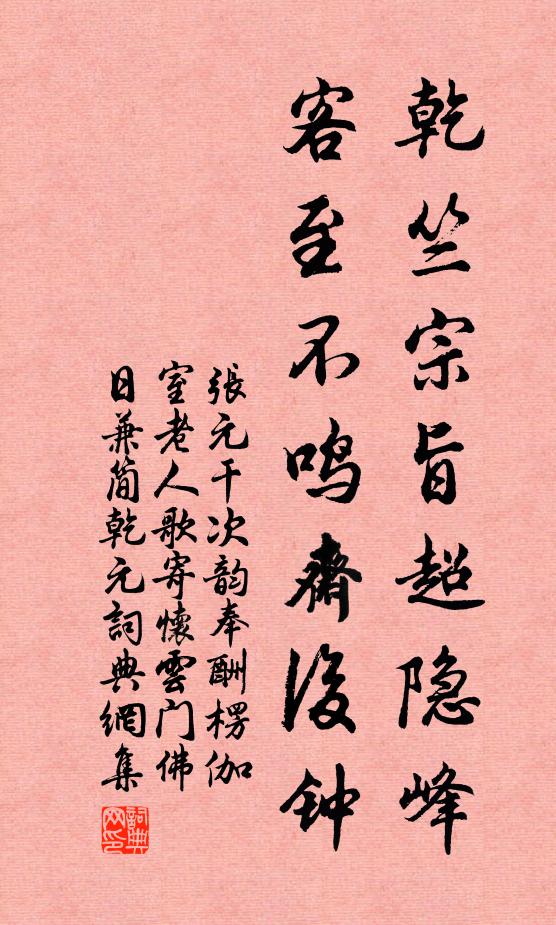 乾竺宗旨超隐峰
客至不鸣斋后钟
張元干次韵奉酬楞伽
室老人歌寄懷雲门佛
日兼简乾元詞典網集
詞典
网印